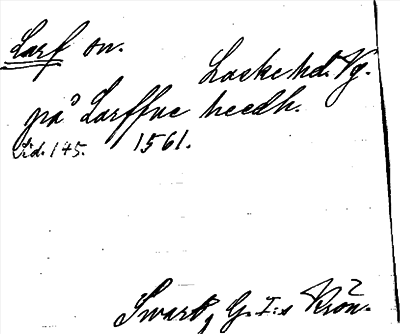 Larf on.
Laske hd. Vg.
på Larffue heedh.
Lid. 145. 1561.
Swart, G. I:s Krön.